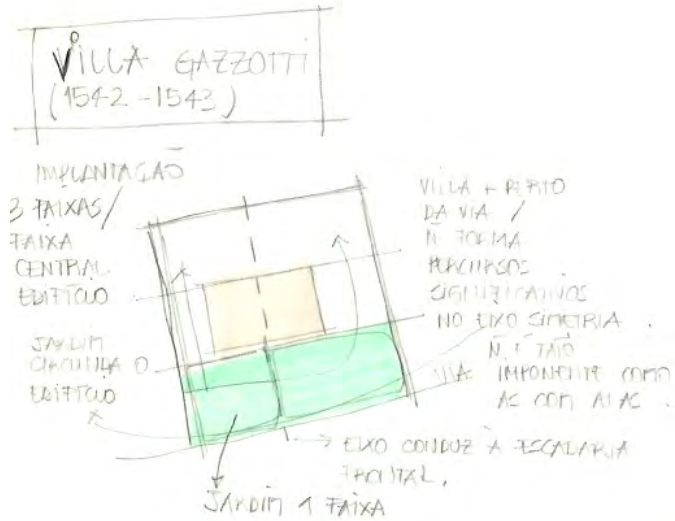 VILLA GAZZOTTI
(1542-1543)
IMPLANTAÇÃO
3 FAIXAS/
FAIXA
CENTRAL
EDIFÍCIO
JARDIM
CIRCUNDA O
EDIFÍCIO
VILLA + PERTO
DA VIA /
Ñ FORMA
PERCURSOS
SIGNIFICATIVOS
NO EIXO SIMETRIA.
Ñ É TÃO
IMPONENTE COMO
AS COM ALAS.
VIA
EIXO CONDUZ À ESCADARIA
FRONTAL.
JARDIM 1 FAIXA